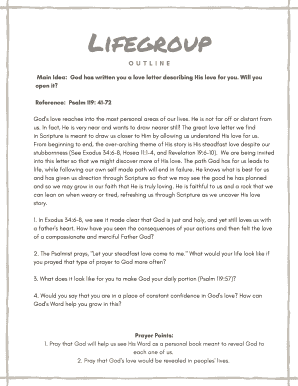 LIFEGROUP
OUTLINE
Main Idea: God has written you a love letter describing His love for you. Will you
open it?
Reference: Psalm 119: 41-72
God's love reaches into the most personal areas of our lives. He is not far off or distant from
us. In fact, He is very near and wants to draw nearer still! The great love letter we find
in Scripture is meant to draw us closer to Him by allowing us understand His love for us.
From beginning to end, the over-arching theme of His story is His steadfast love despite our
stubbornness (See Exodus 34:6-8, Hosea 11:1-4, and Revelation 19:6-10). We are being invited
into this letter so that we might discover more of His love. The path God has for us leads to
life, while following our own self made path will end in failure. He knows what is best for us
and has given us direction through Scripture so that we may see the good he has planned
and so we may grow in our faith that He is truly loving. He is faithful to us and a rock that we
can lean on when weary or tired, refreshing us through Scripture as we uncover His love
story.
1. In Exodus 34:6-8, we see it made clear that God is just and holy, and yet still loves us with
a father's heart. How have you seen the consequences of your actions and then felt the love
of a compassionate and merciful Father God?
2. The Psalmist prays, "Let your steadfast love come to me." What would your life look like if
you prayed that type of prayer to God more often?
3. What does it look like for you to make God your daily portion (Psalm 119:57)?
4. Would you say that you are in a place of constant confidence in God's love? How can
God's Word help you grow in this?
Prayer Points:
1. Pray that God will help us see His Word as a personal book meant to reveal God to
each one of us.
2. Pray that God's love would be revealed in peoples' lives.